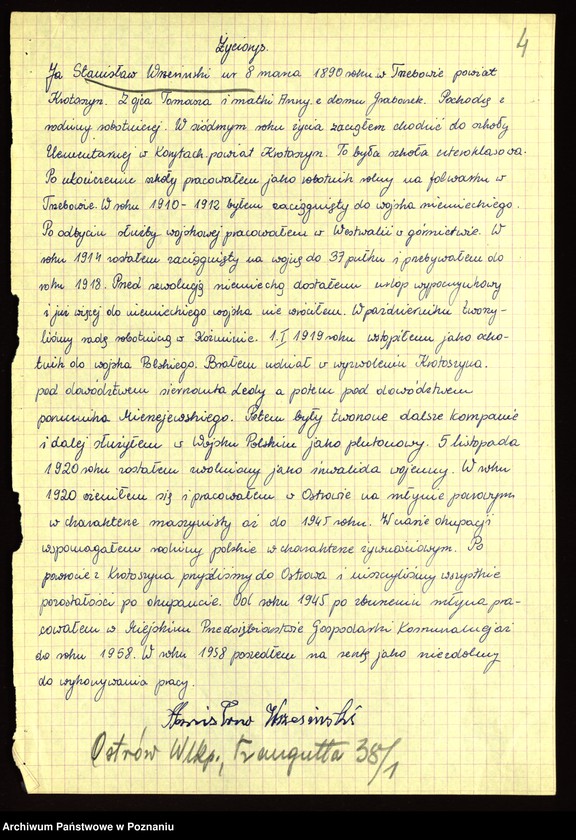 Życiorys.
4
Ja Stanisław Wrzesiński ur 8 marca 1890 roku w Trzebowie powiat
Krotoszyn. Z ojca Tomasza i matki Anny z domu Grabarek. Pochodzę z
rodziny robotniczej. W siódmym roku życia zacząłem chodzić do szkoły
Elementarnej w Korytach, powiat Krotoszyn. To była szkoła czteroklasowa.
Po ukończeniu szkoły pracowałem jako robotnik rolny na folwarku w
Trzebowie. W roku 1910-1912 byłem zaciągnięty do wojska niemieckiego.
Po odbyciu służby wojskowej pracowałem w Westwalii w górnictwie. W
roku 1914 zostałem zaciągnięty na wojnę do 37 pułku i przebywałem do
roku 1918. Przed rewolucją niemiecką dostałem urlop wypoczynkowy
i już więcej do niemieckiego wojska nie wróciłem. W październiku tworzy-
liśmy radę robotniczą w Koźminie. 1.I 1919 roku wstąpiłem jako ocho-
tnik do wojska Polskiego. Brałem udział w wyzwoleniu Krotoszyna.
pod dowództwem sierżanta Ledy a potem pod dowództwem
porucznika Mierzejewskiego. Potem były tworzone dalsze kompanie
i dalej służyłem w Wojsku Polskim jako plutonowy. 5 listopada
1920 roku zostałem zwolniony jako inwalida wojenny. W roku
1920 ożeniłem się i pracowałem w Ostrowie na młynie parowym
w charakterze maszynisty aż do 1945 roku. W czasie okupacji
wspomagałem rodziny polskie w charakterze żywnościowym. Po
powrocie z Krotoszyna przyszliśmy do Ostrowa i niszczyliśmy wszystkie
pozostałości po okupancie. Od roku 1945 po zburzeniu młyna pra-
cowałem w Miejskim Przedsiębiorstwie Gospodarki Komunalnej aż
do roku 1958. W roku 1958 poszedłem na rentę jako niezdolny
do wykonywania pracy.
Stanisław Wrzesiński
Ostrów Wlkp., Traugutta 38/1
Archiwum Państwowe w Poznaniu